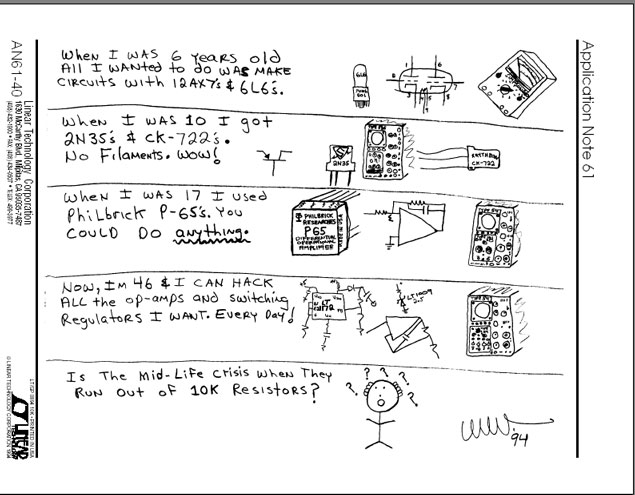 When I was 6 years old
All I wanted to do was make
circuits with 12AX7's & 6L6's.
6L6
When I was 10 I got
2N35's & CK-722's.
No Filaments. Wow!
2N35
RAYTHEON
CK-722
When I was 17 I used
Philbrick P-65's. You
could do anything.
PHILBRICK
RESEARCHES
P65
DIFFERENTIAL
OPERATIONAL
AMPLIFIER
MADE IN USA
Now, I'm 46 & I can hack
all the op-amps and switching
regulators I want. Every day!
LT
LT1009
Is the mid-life crisis when they
run out of 10K resistors?
? ? ? ? ?
'94
Application Note 61
AN61-40
Linear Technology Corporation
1630 McCarthy Blvd., Milpitas, CA 95035-7487
(408) 432-1900 • FAX: (408) 434-0507 • TELEX: 499-3977
LT LINEAR
TECHNOLOGY
© LINEAR TECHNOLOGY CORPORATION 1994